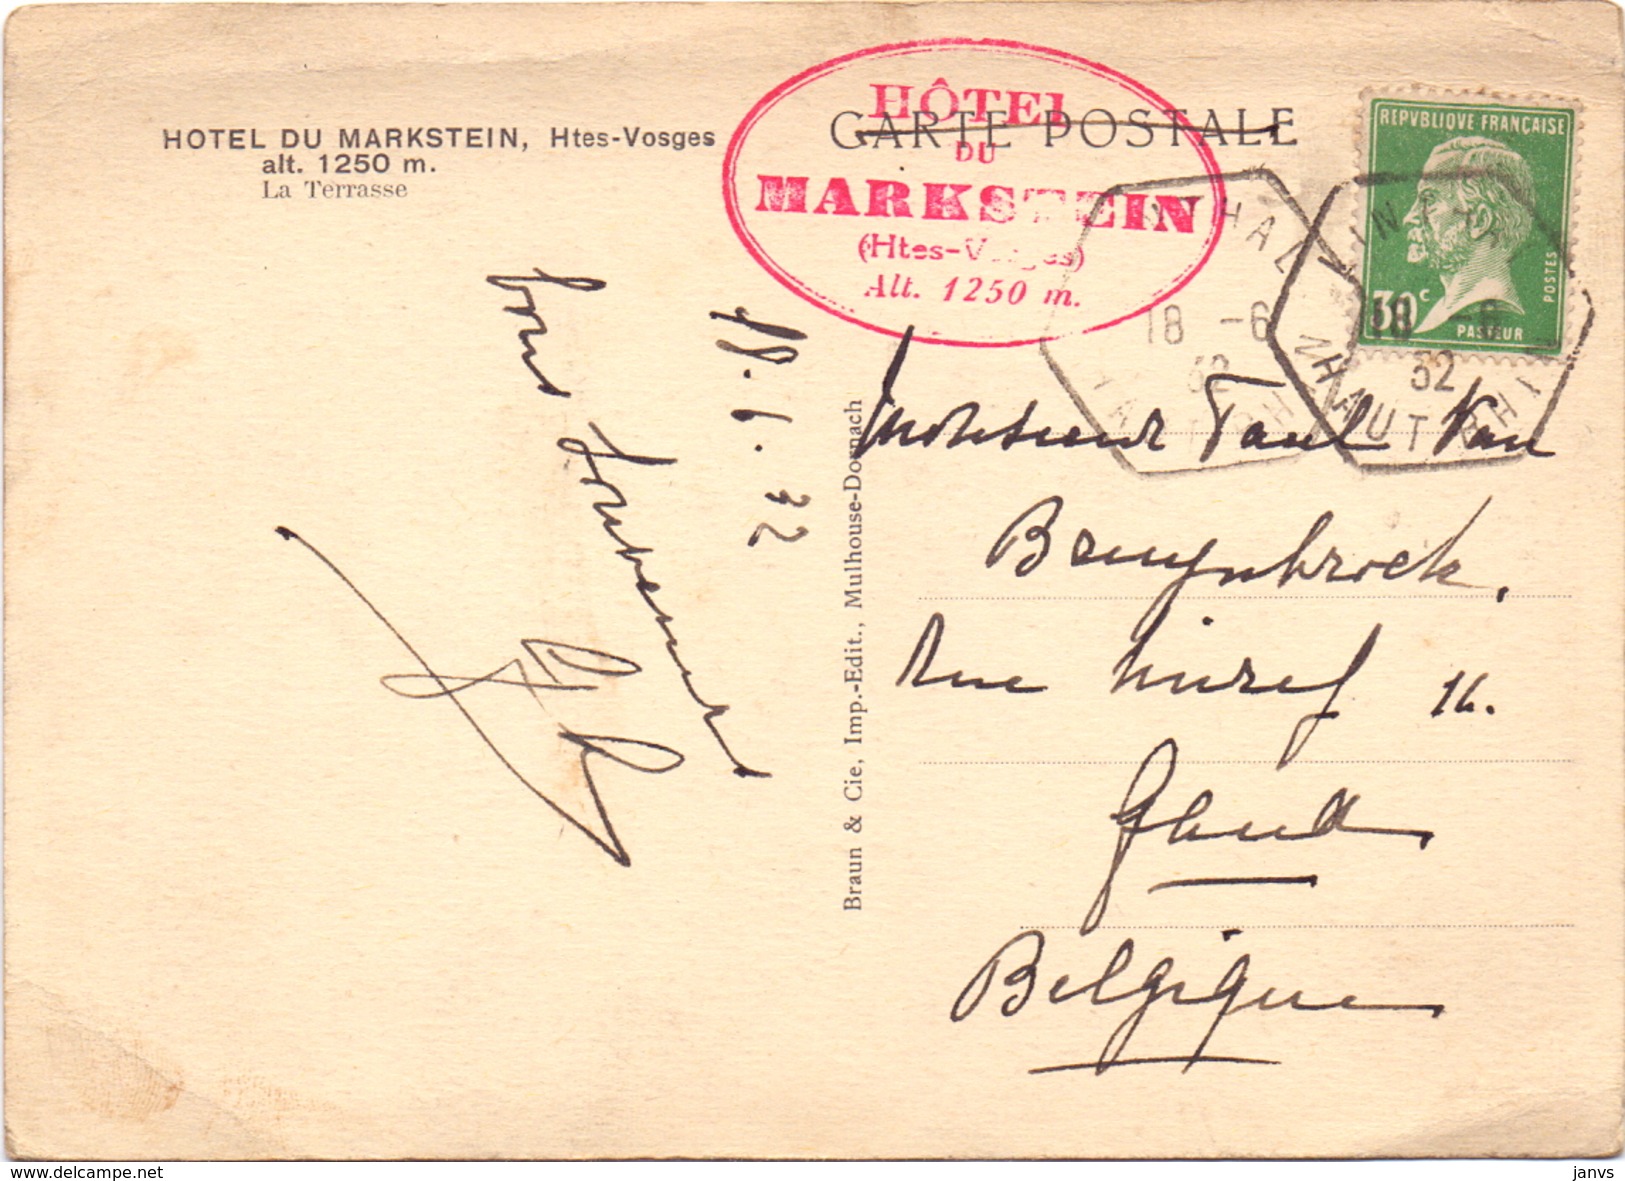 HOTEL DU MARKSTEIN, Htes-Vosges
alt. 1250 m.
La Terrasse
CARTE POSTALE
HÔTEL
DU
MARKSTEIN
(Htes-Vosges)
Alt. 1250 m.
REPVBLIQVE FRANÇAISE
POSTES
30c
PASTEUR
18 -6
32
18 -6
32
HAUT RHIN
18.6.32
bons souvenirs
Braun & Cie, Imp.-Edit., Mulhouse-Dornach
Monsieur Paul Van
Bruynbroek,
Rue 16.
Gand
Belgique
www.delcampe.net
janvs